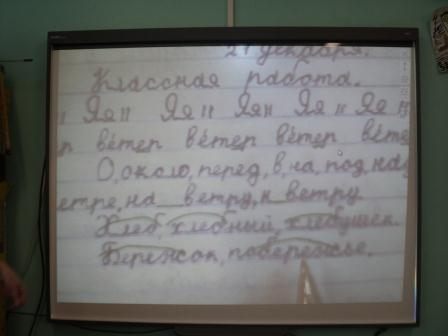 21 декабря.
Классная работа.
" Яя " Яя " Яя " Яя " Яя "
р ве́тер ве́тер ве́тер ве́те
О, около, перед, в, на, под, над
етре, на ветру, к ветру
Хлеб, хлебный, хлебушек.
Бережок, побережье.